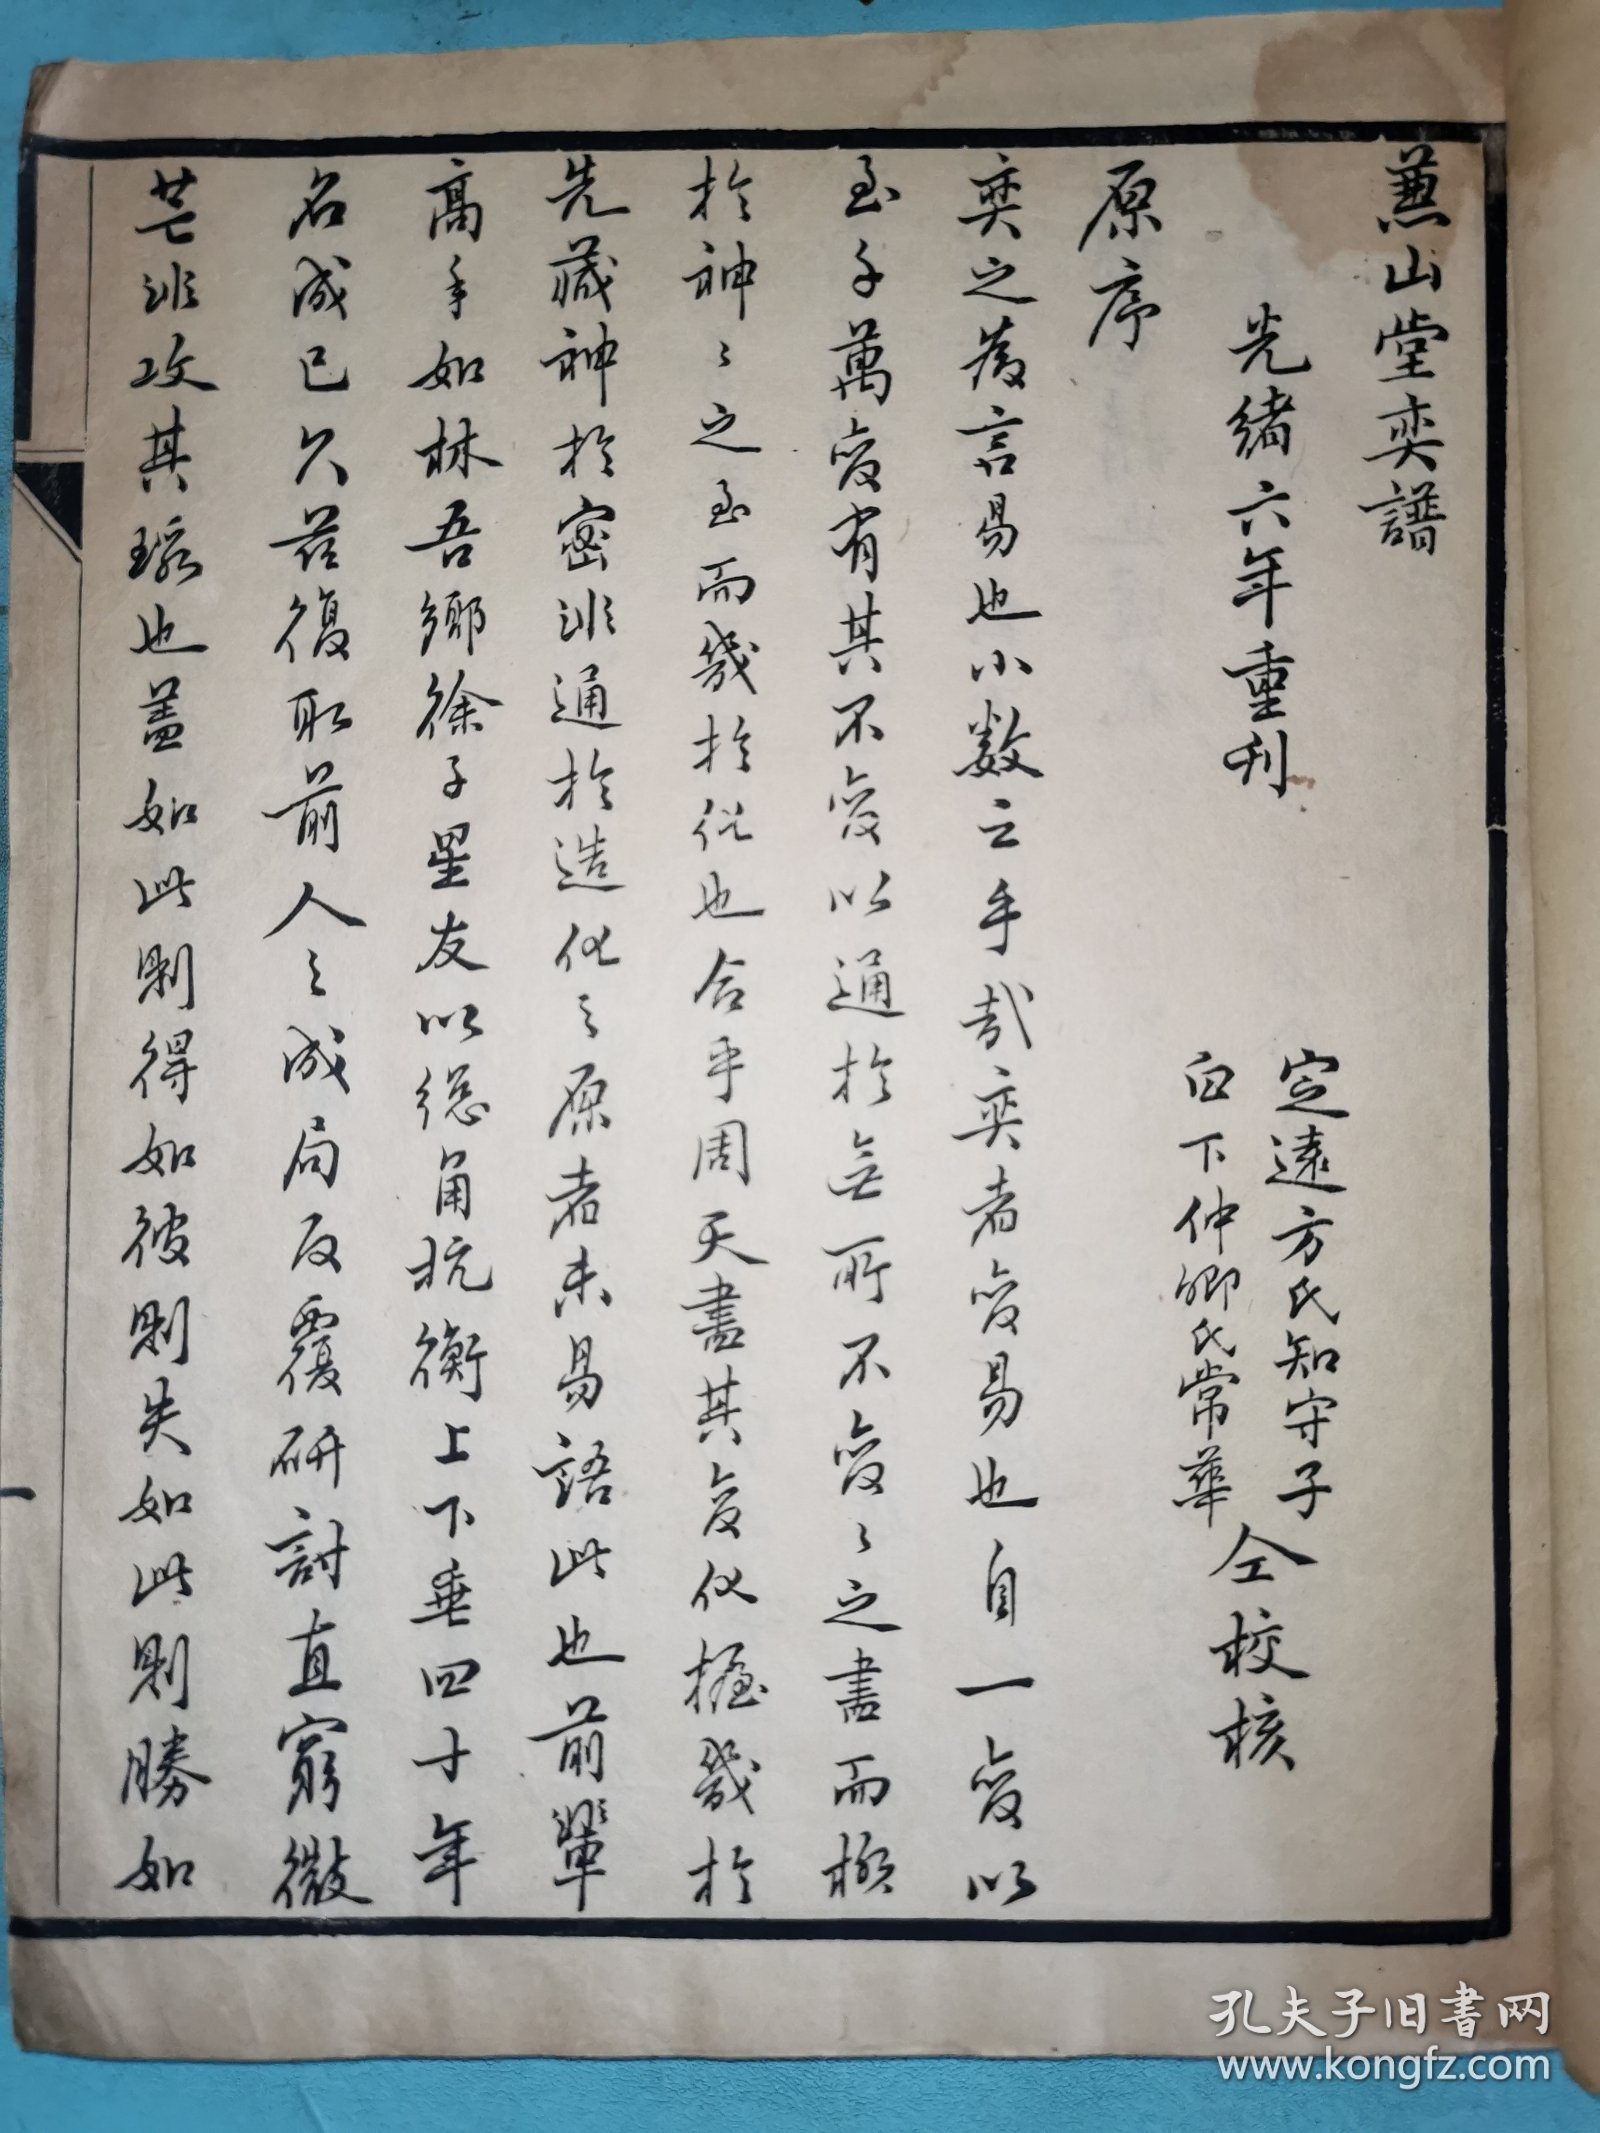 蒹山堂奕譜
光緒六年重刋
定遠方氏知守子
白下仲卿氏常華
仝校核
原序
奕之為言易也小數云乎哉奕者變易也自一變以
至千萬變有其不變以通於無所不變〻之盡而極
於神〻之至而幾於化也合乎周天盡其變化握幾於
先藏神於密非通於造化之原者未易語此也前輩
高手如林吾鄉徐子星友以總角抗衡上下垂四十年
名成已久茲復取前人之成局反覆研討直窮微
芒非攻其瑕也蓋如此則得如彼則失如此則勝如
一
孔夫子旧书网
www.kongfz.com